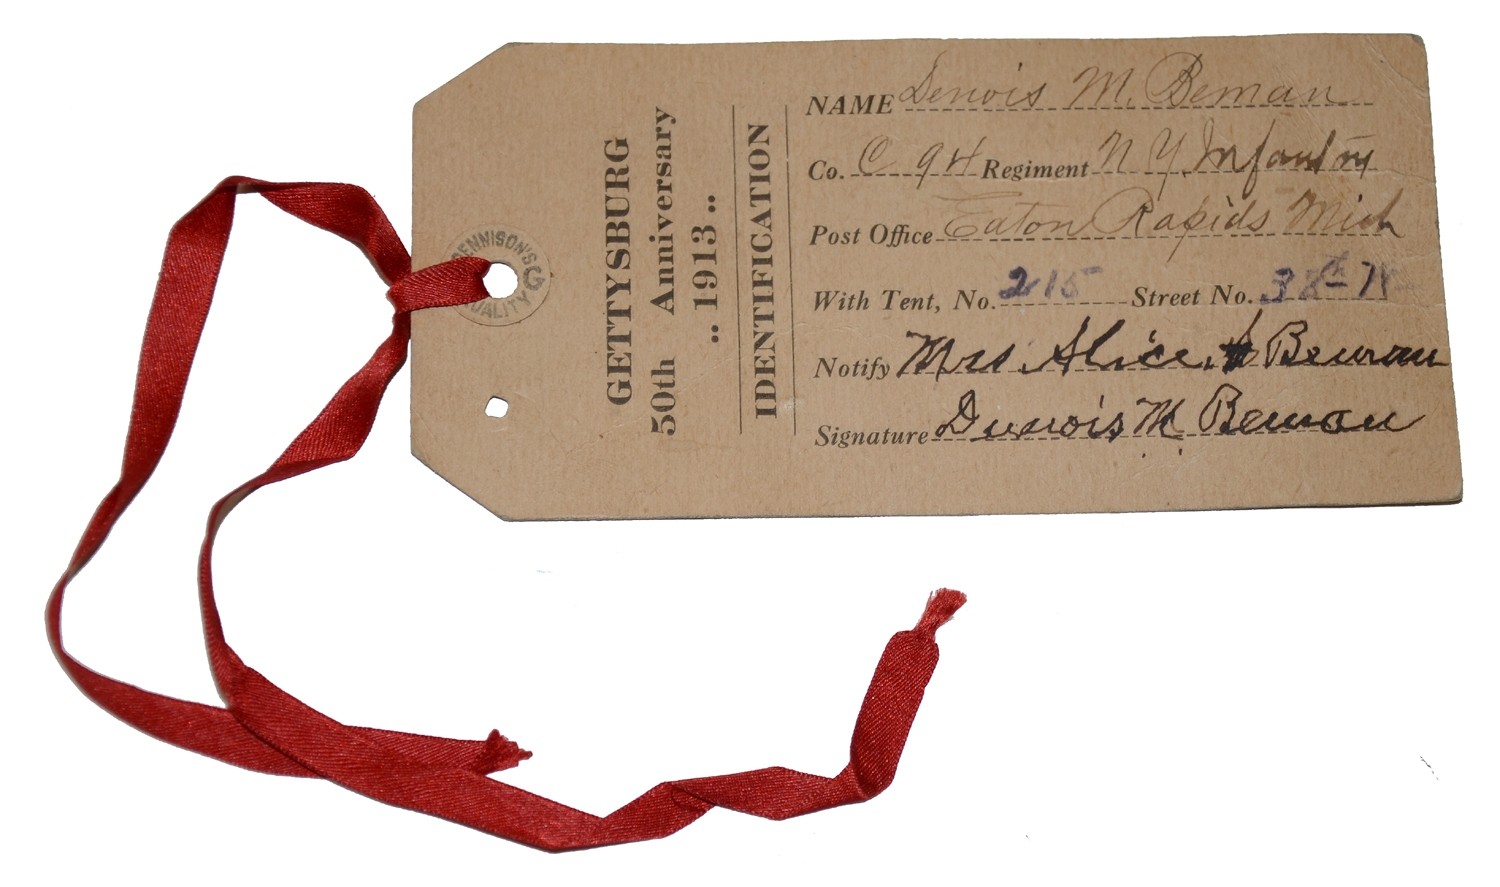 DENNISON'S
QUALITY
GETTYSBURG
50th Anniversary
.. 1913 ..
IDENTIFICATION
NAME Denois M. Beman
Co. C 94 Regiment N Y. Infantry
Post Office Eaton Rapids Mich
With Tent, No. 215 Street No. 38th
Notify Mrs. Alice Beman
Signature Denois M Beman